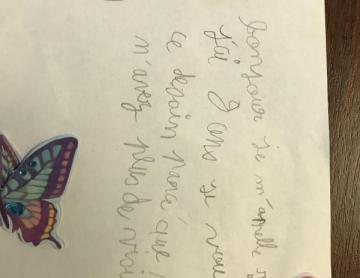 bonjour je m'appelle
j'ai 9 ans je
ce dessin parce que
n'avez plus de